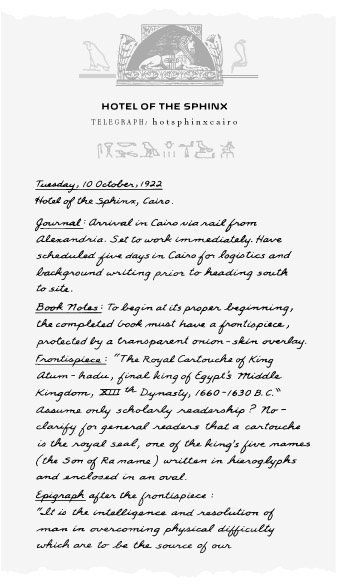 HOTEL OF THE SPHINX
TELEGRAPH: hotsphinxcairo
Tuesday, 10 October, 1922
Hotel of the Sphinx, Cairo.
Journal: Arrival in Cairo via rail from
Alexandria. Set to work immediately. Have
scheduled five days in Cairo for logistics and
background writing prior to heading south
to site.
Book Notes: To begin at its proper beginning,
the completed book must have a frontispiece,
protected by a transparent onion-skin overlay.
Frontispiece: "The Royal Cartouche of King
Atum-hadu, final king of Egypt's Middle
Kingdom, XIII th Dynasty, 1660-1630 B.C."
Assume only scholarly readership? No-
clarify for general readers that a cartouche
is the royal seal, one of the king's five names
(the Son of Ra name) written in hieroglyphs
and enclosed in an oval.
Epigraph after the frontispiece:
"It is the intelligence and resolution of
man in overcoming physical difficulty
which are to be the source of our